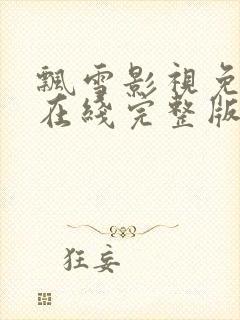 飄雪影視免
在綫完整版
狂妄